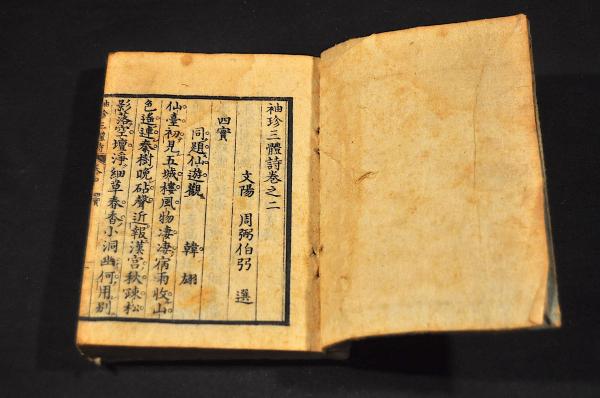 袖珍三體詩卷之二
文陽 周弼伯弜 選
四實
同題仙遊觀 韓翃
仙臺初見五城樓。風物凄凄宿雨收。山
色遙連秦樹晚。砧聲近報漢宮秋。疎松
影落空壇淨。細草春香小洞幽。何用別
袖珍三體詩